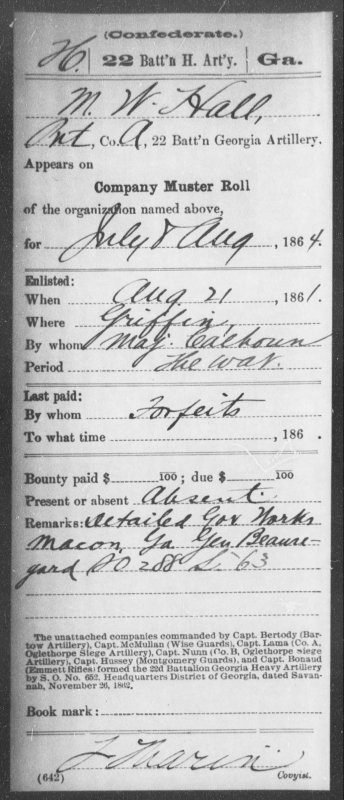 (Confederate.)
H. | 22 Batt'n H. Art'y. | Ga.
M. W. Hall,
Pvt, Co. A, 22 Batt'n Georgia Artillery.
Appears on
Company Muster Roll
of the organization named above,
for July & Aug, 1864.
Enlisted:
When Aug 21, 1861.
Where Griffin,
By whom Maj. Calhoun
Period The war.
Last paid:
By whom Forfeits
To what time , 186 .
Bounty paid $ 100; due $ 100
Present or absent Absent.
Remarks: Detailed Gov Works
Macon, Ga Gen Beaure-
gard SO 288 63
The unattached companies commanded by Capt. Bertody (Bar-
tow Artillery), Capt. McMullan (Wise Guards), Capt. Lama (Co. A,
Oglethorpe Siege Artillery), Capt. Nunn (Co. B, Oglethorpe Siege
Artillery), Capt. Hussey (Montgomery Guards), and Capt. Bonaud
(Emmett Rifles) formed the 22d Battalion Georgia Heavy Artillery
by S. O. No. 652, Headquarters District of Georgia, dated Savan-
nah, November 26, 1862.
Book mark:
(642) Copyist.